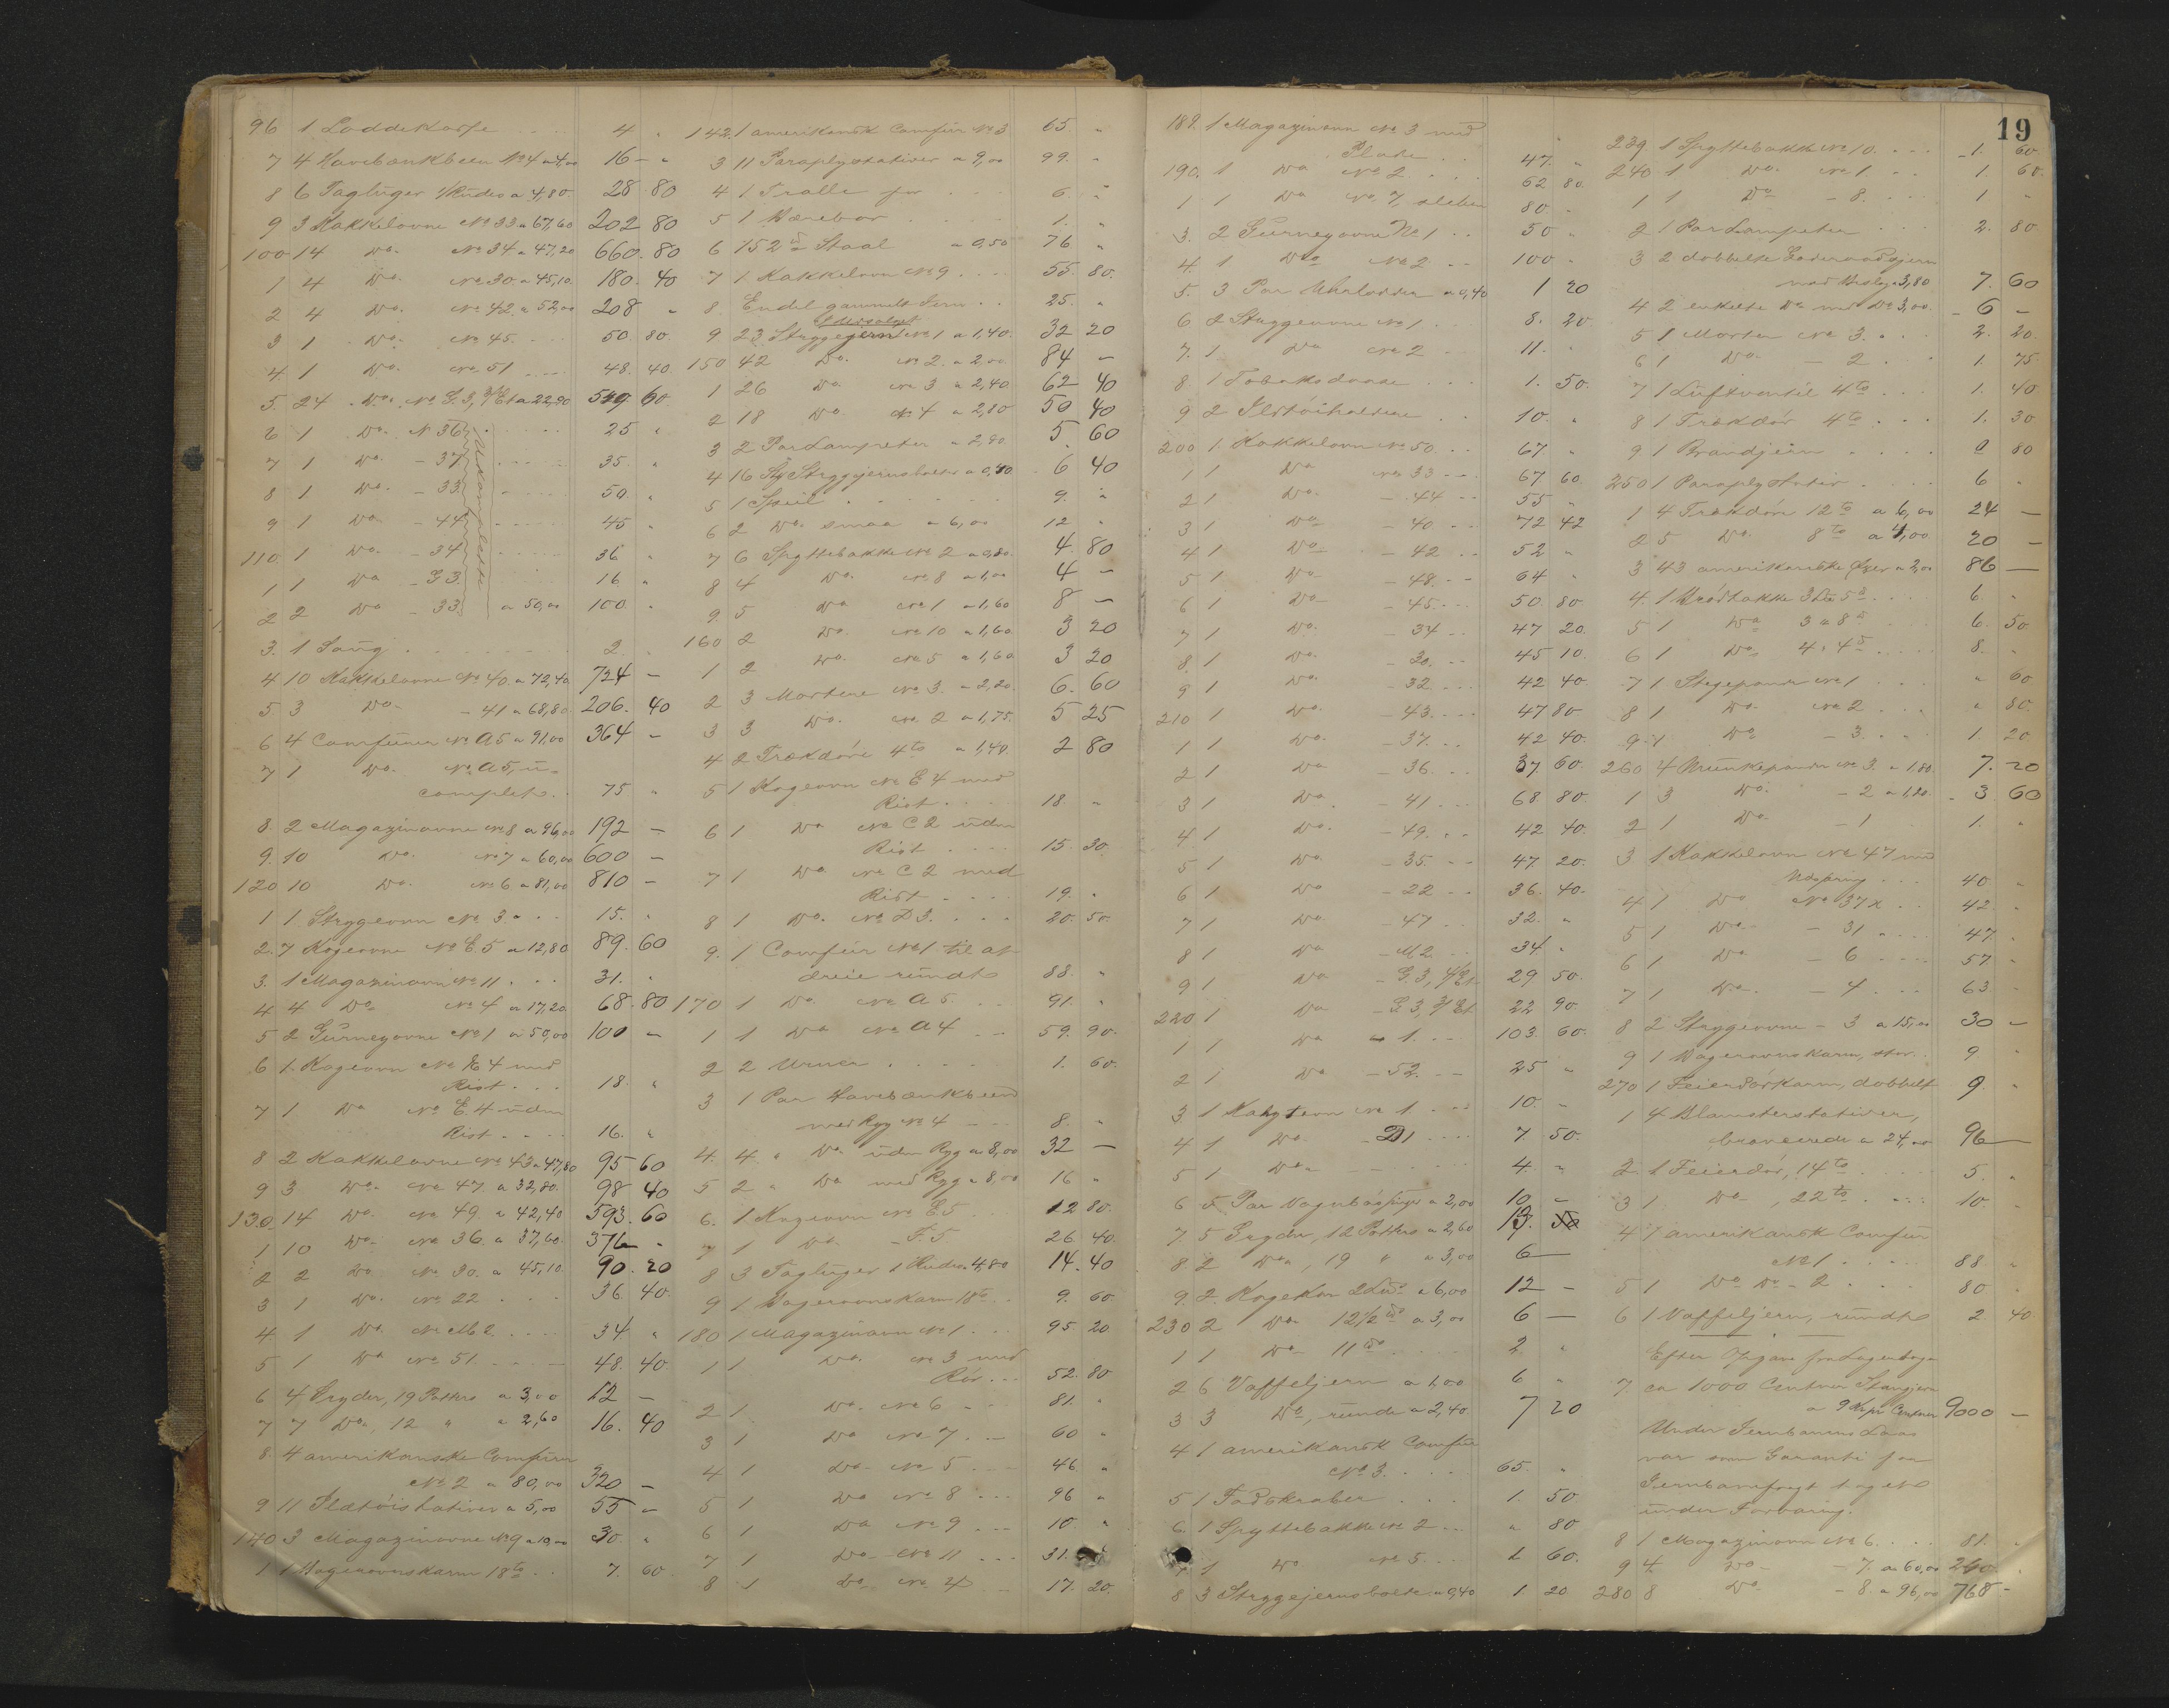 96 1 Loddekasse 4 "
7 4 Havebænkbeen No 4 a 4,00 16 - "
8 6 Tagluger 4 Ruders a 4,80 28 80
9 3 Kakkelovne No 33 a 67,60 202 80
100 14 Do. No 34 a 47,20 660. 80
1 4 Do. No 30. a 45,10. 180. 40
2 4 Do. No 42. a 52,00 208 "
3 1 Do. No 45. 50. 80.
4 1 Do. No 51 48. 40.
5. 24 Do. No G.3, a 22,90 549 60
6 1 Do. N 36 25 "
7 1 Do. - 37 35. "
8 1 Do. - 33. 50. "
9 1 Do. - 44 45 "
110. 1 Do. - 34 36 "
1 1 Do - G 3. 16 "
2 2 Do - 33. a 50,00 100. "
Ukomplette
3. 1 Saug 2. "
4 10 Kakkelovne No 40. a 72,40 724 -
5 3 Do. - 41 a 68,80. 206. 40
6 4 Comfurer No A5 a 91,00 364 -
7 1 Do. No A5, u-
complet. 75 "
8. 2 Magazinovne No 8 a 96,00 192 -
9. 10 Do. No 7 a 60,00 600 -
120 10 Do. No 6 a 81,00 810 -
1 1 Strygeovn No 3 15. "
2. 7 Kogeovne No E.5 a 12,80 89. 60
3. 1 Magazinovn No 11 31. "
4 4 Do No 4 a 17,20. 68. 80
5 2 Gurneyovne No 1 a 50,00 100 -
6 1. Kogeovn No E 4 med
Rist 18. "
7 1 Do No E. 4 uden
Rist 16. "
8 2 Kakkelovne No 43 a 47,80 95 60
9 3 Do. No 47 a 32,80. 98 40
130 14 Do. No 49 a 42,40 593. 60
1 10 Do. No 36. a 37,60. 376 -
2 2 Do. No 30. a 45,10. 90. 20
3 1 Do. No 22 36. 40.
4. 1 Do. No M 2. 34 "
5 1 Do No 51. 48. 40.
6 4 Gryder, 19 Potters a 3,00 12 -
7 7 Do, 12 " a 2,60 16. 40
8. 4 amerikanske Comfurer
No 2 a 80,00 320 -
9 11 Ildtöistativer a 5,00 55 -
140 3 Magazinovne No 9 a 10,00 30. "
1 1 Bagerovnskarm 18to 7. 60
142. 1 amerikansk Comfur No 3 65. "
3 11 Paraplystativer a 9,00 99. "
4 1 Tralle 6. "
5 1 Bærebør 1. "
6 152 Staal a 0,50 76 "
7 1. Kakkelovn No 9 55. 80.
8. Endel gammelt Jern 25. "
9 23 Strygejern No 1 a 1,40. 32 20
150 42 Do. No 2. a 2,00 84 -
1 26 Do No 3 a 2,40 62 40
2 18 Do No 4 a 2,80 50 40
3 2 Par Lampetter a 2,80. 5 60
4 16 Strygejernsbolter a 0,40. 6 40
5 1 Speil 9. "
6 2 Do. smaa a 6,00 12 "
7 6 Spyttebakke No 2 a 0,80. 4. 80
8 4 Do. No 8 a 1,00 4 -
9. 5 Do No 1 a 1,60 8 -
160 2 Do. No 10 a 1,60 3 20
1 2 Do. No 5 a 1,60. 3 20
2 3 Mortere No 3. a 2,20. 6. 60
3 3 Do. No 2 a 1,75. 5 25
4 2 Trækdöre 4to a 1,40. 2 80
5 1 Kogeovn No E 4 med
Rist 18. "
6 1 Do No C 2 uden
Rist 15. 30.
7 1 Do No C 2 med
Rist 19. "
8 1 Do. No D 3. 20. 50.
9. 1 Comfur No 1 til at
dreie rundt 88. "
170 1 Do. No A 5. 91. "
1 1 Do No A 4 59. 90.
2 2 Urner 1. 60.
3 1 Par Havebænkbeen
med Ryg No 4 8. "
4. 4. " Do uden Ryg a 8,00 32 -
5 2 " Do med Ryg a 8,00 16 "
6. 1 Kogeovn No E.5 12 80.
7 1 Do - F.5 26 40.
8 3 Tagluger 1 Rudes 4,80 14. 40
9 1 Bagerovnskarm 18to 9. 60.
180 1 Magazinovn No 1 95. 20.
1 1 Do. No 3 med
Rör 52. 80.
2 1 Do. No 6 81. "
3 1 Do No 7. 60 "
4 1 Do No 5 46. "
5 1 Do No 8 96 "
6 1 Do No 9 10 "
7 1 Do No 11 31.
8 1 Do No 4 17. 20.
189. 1 Magazinovn No 3 med
Plade 47. "
190. 1 Do No 2 62 80.
1 1 Do No 7, sleben 80 "
3. 2 Gurneyovne No 1 50 "
4. 1 Do No 2 100 "
5. 3 Par Uhrlodder a 0,40 1 20
6. 2 Strygeovne No 1 8. 20.
7. 1 Do No 2 11. "
8 1 Tobaksdaase 1. 50.
9 2 Ildtöiholdere 10. "
200 1. Kakkelovn No 50 67 "
1 1 Do No 33 67 60.
2 1 Do. - 44 55 "
3 1 Do - 40 72 42
4 1 Do - 42 52 "
5 1 Do - 48. 64 "
6 1 Do - 45. 50. 80.
7 1 Do. - 34 47 20.
8. 1 Do. - 30. 45 10.
9 1 Do. - 32 42 40.
210 1 Do. - 43. 47 80
1 1 Do. - 37. 42 40.
2 1 Do - 36. 37. 60.
3 1 Do. - 41 68. 80.
4. 1 Do. - 49. 42 40.
5 1 Do. - 35. 47. 20.
6 1 Do - 22 36. 40.
7 1 Do - 47 32. "
8 1 Do - M 2 34 "
9 1 Do - G. 3, 29 50.
220 1 Do - G 3, 22 90.
1 1 Do - 1. 103. 60.
2 1 Do - 52. 25 "
3. 1 No 1. 10. "
4 1 Do. - D1 7. 50.
5 1 Do 4. "
6 5 Par a 2,00 10 -
7. 5 Gryder, 12 Potters a 2,60 13.
8 2 Do, 19 " a 3,00 6 -
9. 2. a 6,00 12 -
230 2 Do 12½ a 3,00 6 -
1 1 Do 11 2. "
2 6 Vaffeljern a 1,00 6 "
3 3 Do, runde a 2,40 7 20
4 1 amerikansk Comfur
No 3. 65. "
5 1 Fadskraber 1. 50
6. 1 Spyttebakke No 2 " 80
7. 1 Do No 5 1 60.
8 3 Strygejernsbolte a 0,40 1 20
19
239 1 Spyttebakke No 10. 1. 60.
240 1 Do. No 1 1. 60.
1 1 Do - 8. 1 "
2 1 Par Lampetter 2. 80.
3 2 dobbelte
med Beslag a 3,80 7. 60
4 2 enkelte Do med Do 3,00. 6 -
5 1 Morter No 3. 2. 20.
6 1 Do. - 2 1. 75
7 1 Luftventil 4to 1. 40
8 1 Trækdör 4to 1. 30
9 1 Brandjern 0 80
250 1 Paraplystativ 6 "
1 4 Trækdöre 12to a 6,00 24 -
2 5 Do. 8to a 4,00. 20 -
3 43 amerikanske Öxer a 2,00 86 -
4. 1 6. "
5 1 Do 3 a 8 6. 50.
6 1 Do 4. 4 8. "
7 1 Stegepande No 1 " 60
8 1 Do. No 2 " 80.
9. 1 Do - 3. 1 20
260 4 Munkepander No 3. a 1,80. 7. 20
1 3 Do. - 2 a 1,20. 3 60
2 1 Do - 1 1. "
3 1 Kakkelovn No 47 med
Udspring 40. "
4 1 Do No 37x 42 "
5 1 Do - 31 47. "
6 1 Do - 6 57. "
7 1 Do. - 4 63 "
8 2 Strygeovne - 3 a 15,00 30 -
9 1 Bagerovnskarm, stor 9 "
270 1 Feierdörkarm, dobbelt 9. "
1 4 Blomsterstativer,
broncerede a 24,00 96 -
2. 1 Feierdör, 14to 5. "
3 1 Do, 22to 10. "
4 1 amerikansk Comfur
No 1 88. "
5 1 Do Do - 2 80 "
6 1 Vaffeljern, rundt 2 40.
Efter Opgave fra Lagerbogen
7. ca 1000 Centner Stangjern
a 9 Kr pr Centner 9000 -
Under Jernbanens Laas
var som Garanti for
Jernbanefragt taget
under Forvaring.
8 1 Magazinovn No 6 81. "
9 4 Do - 7. a 60,00 240. "
280 8 Do - 8. a 96,00 768 -